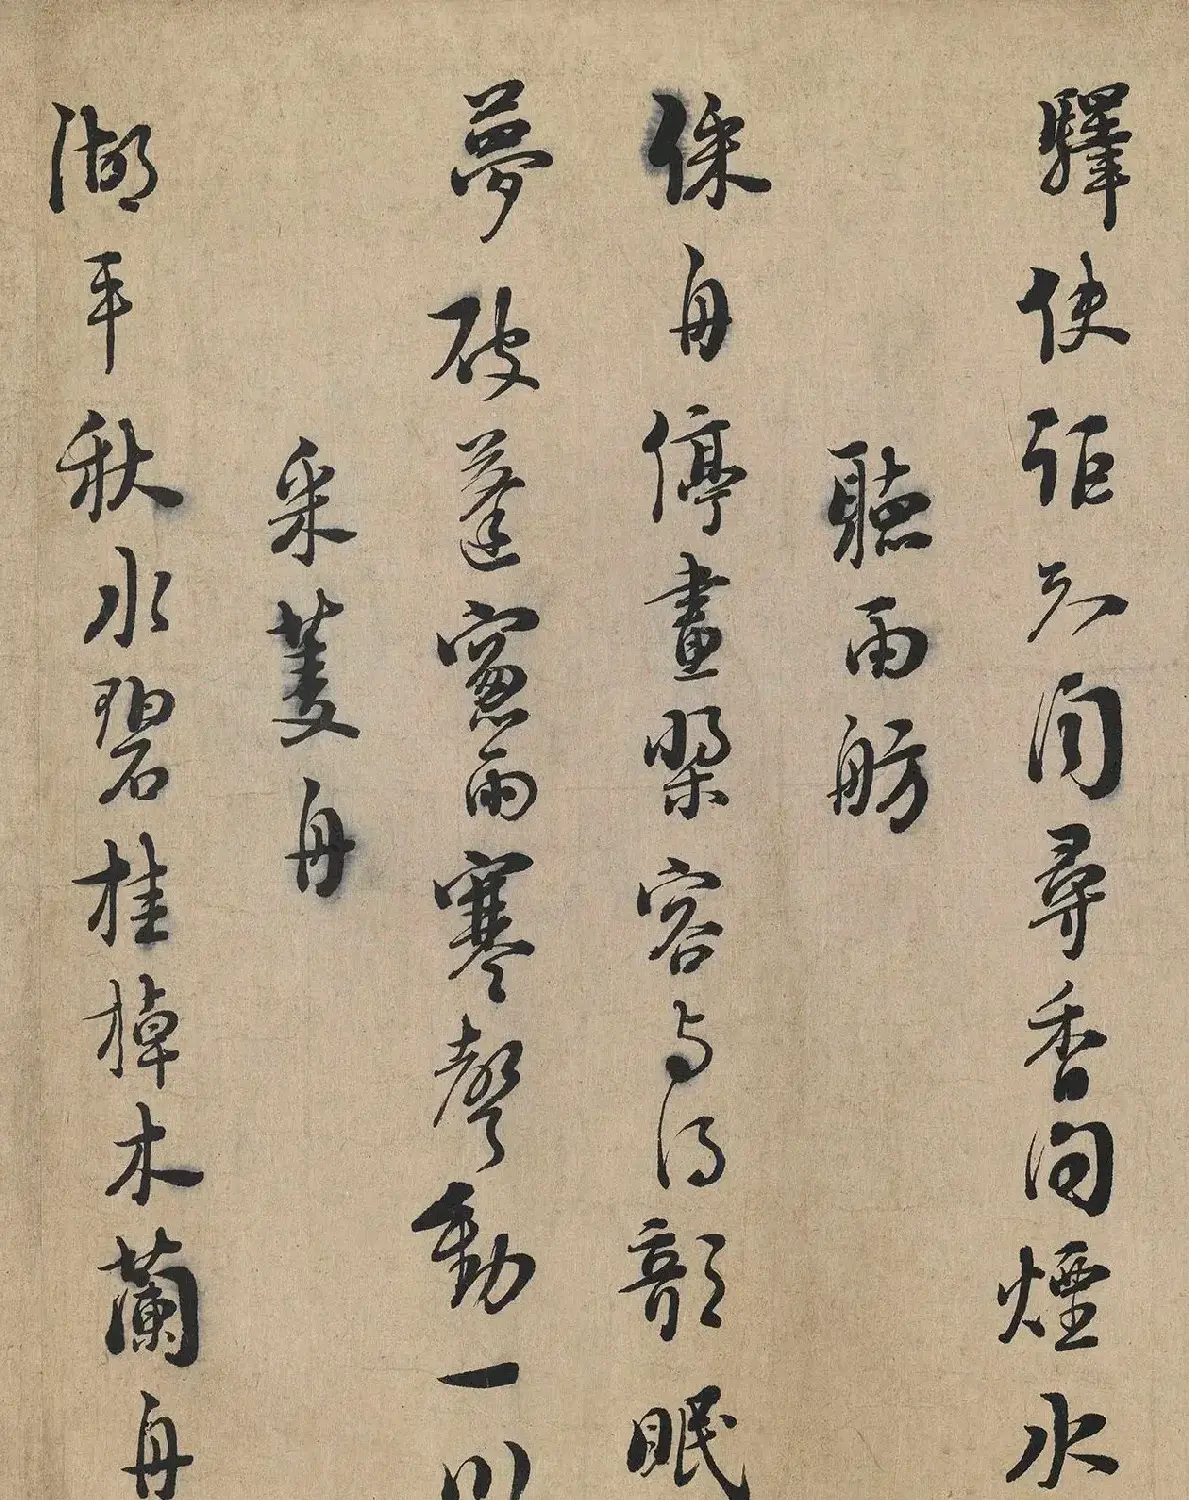 驛使詎知閒尋香問煙水
聽雨舫
採舟停畫槳容与得欹眠
夢破蓬窗雨寒聲動一川
采菱舟
湖平秋水碧桂棹木蘭舟